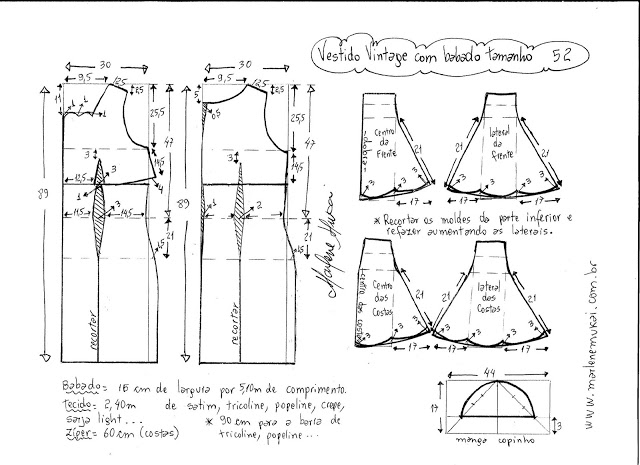 Vestido Vintage com babado tamanho 52
30
9,5
12,5
11
1
1
1
2,5
25,5
47
3
14,5
12,5
3
4
1
11,5
3
14,5
21
1,5
89
recortar
30
9,5
12,5
5
0,5
2,5
25,5
47
3
14,5
1
2
21
1,5
89
recortar
Marlene Mukai
dobra
Centro
da
frente
21
3
3
17
lateral
da
frente
21
21
3
3
3
17
* Recortar os moldes da parte inferior e
refazer aumentando as laterais.
centro das costas
Centro
das
Costas
21
3
3
17
lateral
das
Costas
21
21
3
3
3
17
www.marlenemukai.com.br
Babado= 15 cm de largura por 5,10m de comprimento.
Tecido= 2,40m de satim, tricoline, popeline, crepe,
sarja light...
* 90 cm para a barra de
tricoline, popeline...
Zíper= 60 cm (costas)
44
17
3
manga copinho